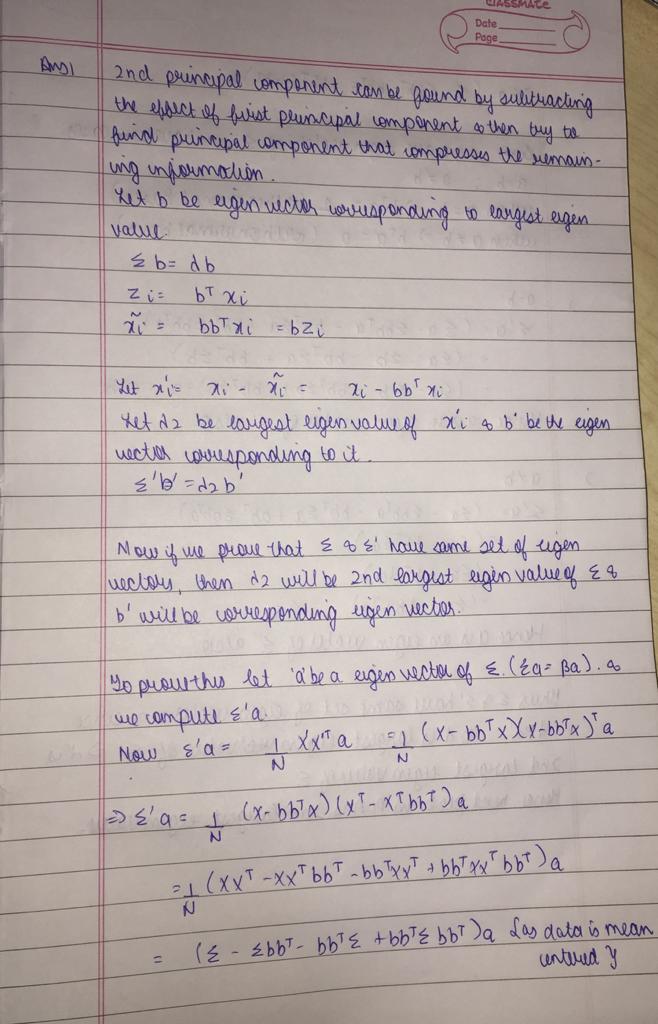 CLASSMATE
Date
Page
Ans1 2nd principal component can be found by subtracting
the effect of first principal component & then try to
find principal component that compresses the remain-
ing information.
Let b be eigen vector corresponding to largest eigen
value
Σb = λb
zi = bᵀxi
x̃i = bbᵀxi = bzi
Let x'i = xi - x̃i = xi - bbᵀxi
Let λ2 be largest eigen value of x'i & b' be the eigen
vector corresponding to it.
Σ'b' = λ2b'
Now if we prove that Σ & Σ' have same set of eigen
vectors, then λ2 will be 2nd largest eigen value of Σ &
b' will be corresponding eigen vector.
To prove this let 'a' be a eigen vector of Σ. (Σa = βa). &
we compute Σ'a.
Now Σ'a = 1/N X'X'ᵀa = 1/N (X - bbᵀX)(X - bbᵀX)ᵀa
⇒ Σ'a = 1/N (X - bbᵀX)(Xᵀ - Xᵀbbᵀ)a
= 1/N (XXᵀ - XXᵀbbᵀ - bbᵀXXᵀ + bbᵀXXᵀbbᵀ)a
= (Σ - Σbbᵀ - bbᵀΣ + bbᵀΣbbᵀ)a {as data is mean
centered}